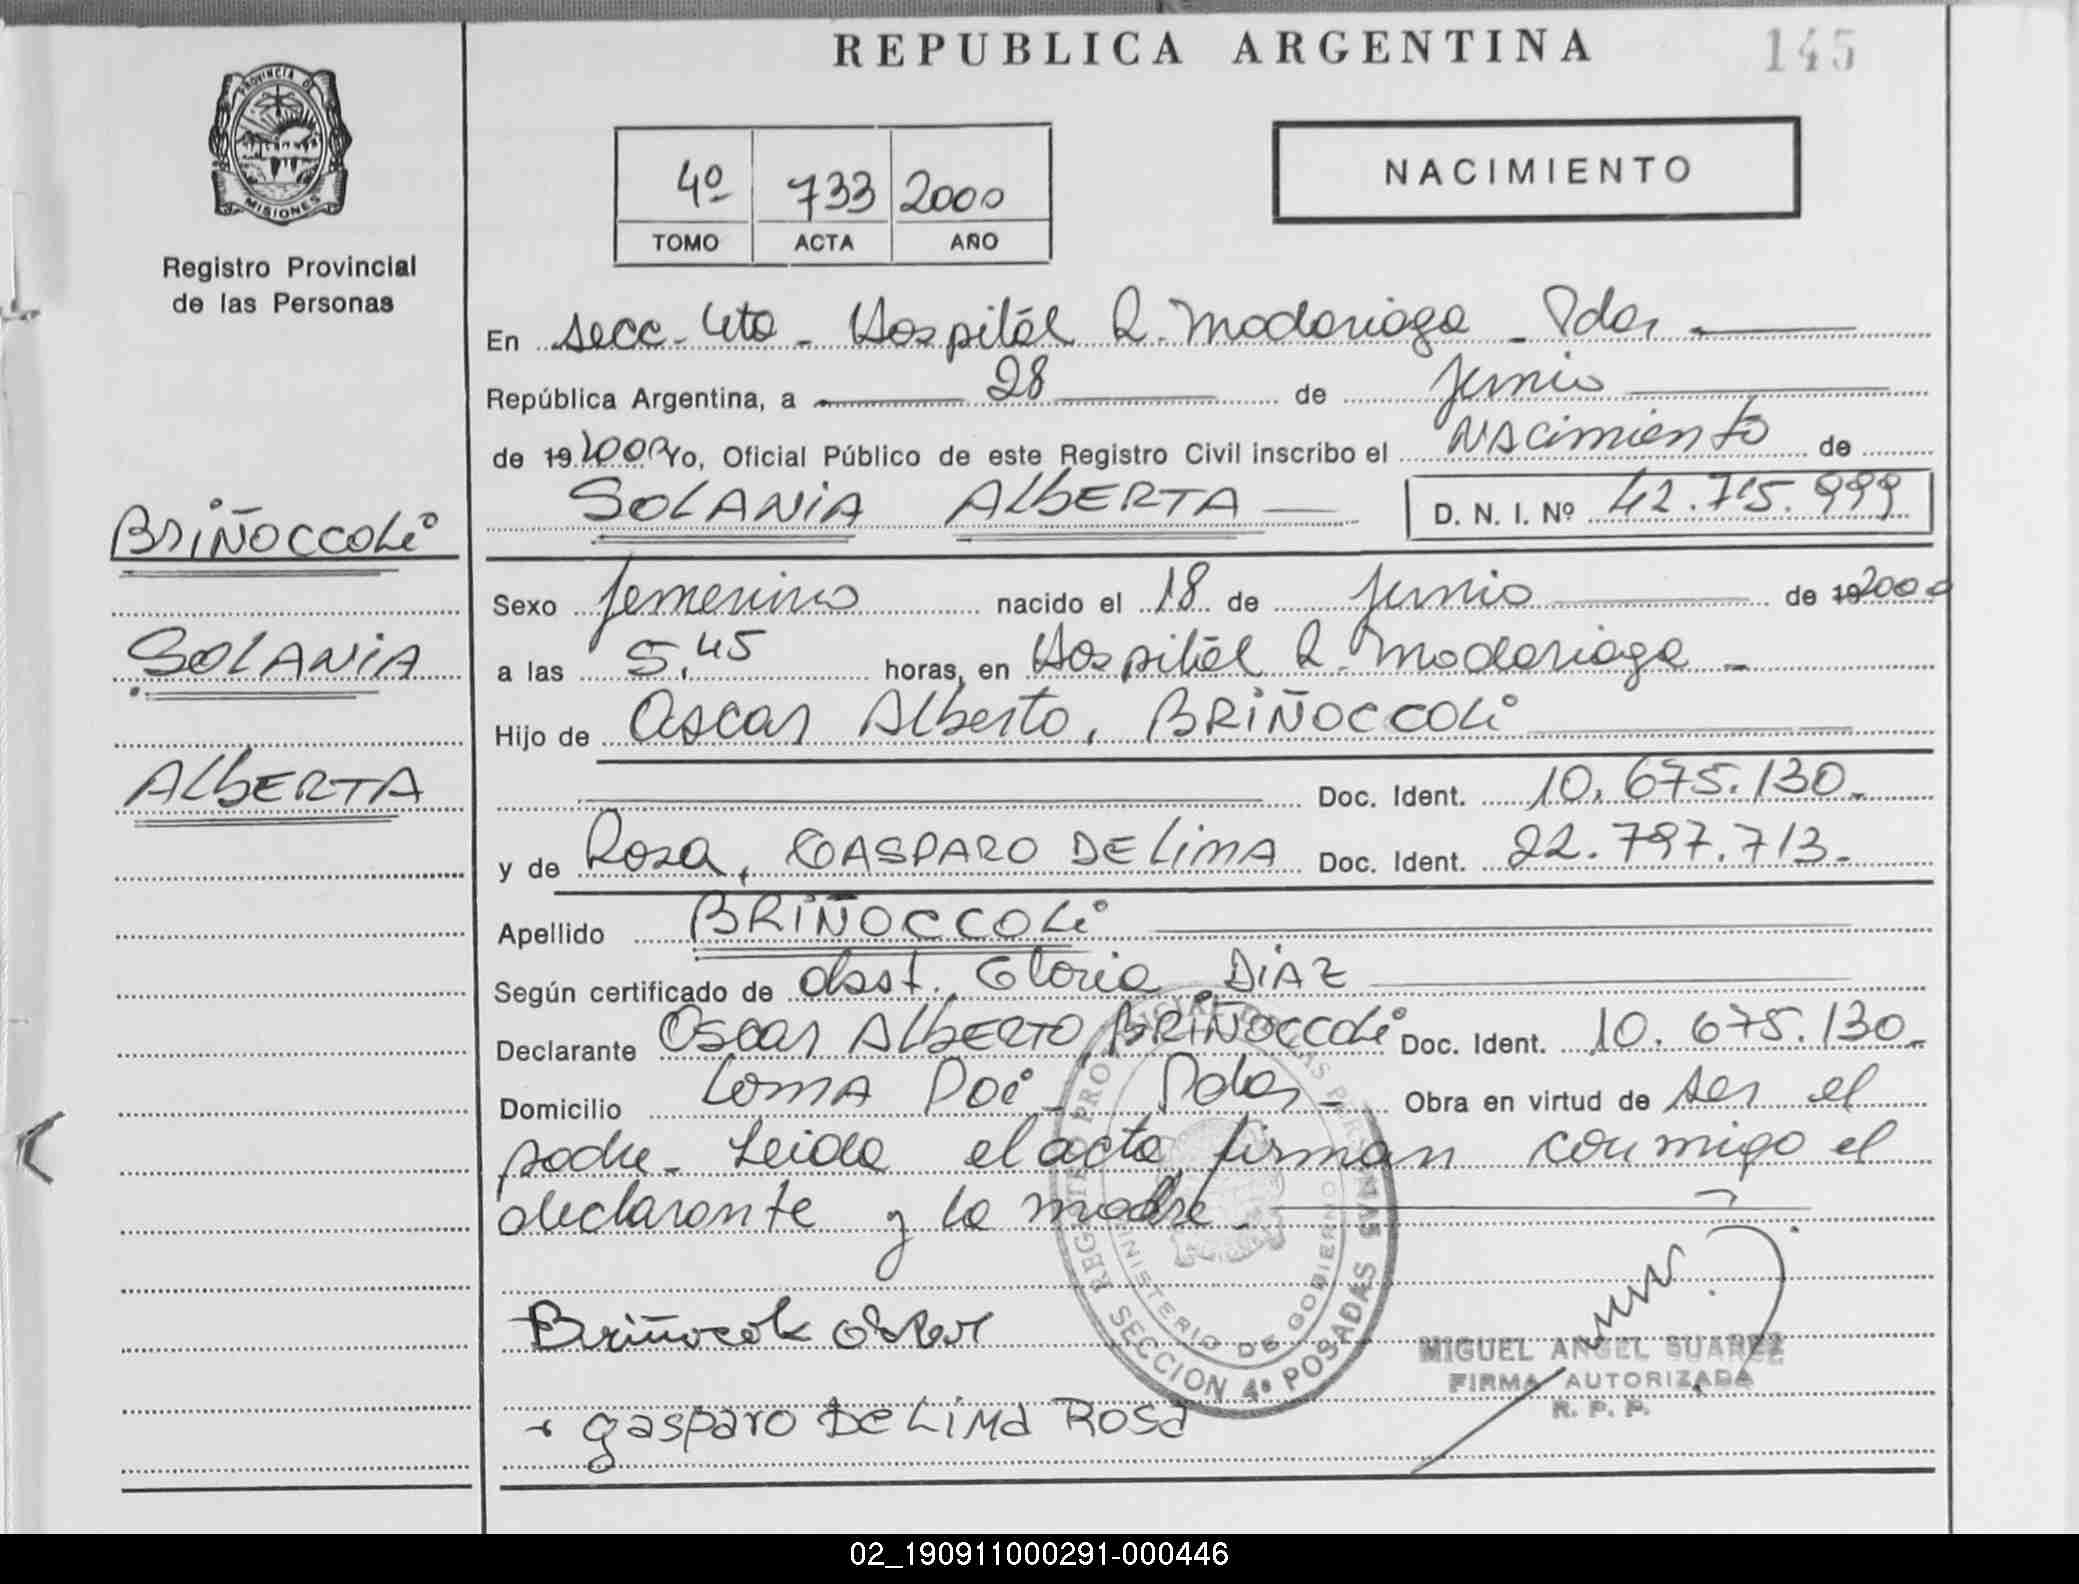 REPUBLICA ARGENTINA
145
PROVINCIA DE
MISIONES
Registro Provincial
de las Personas
4º 733 2000
TOMO ACTA AÑO
NACIMIENTO
En secc. 4ta - Hospitál R. Madariaga - Pdas
República Argentina, a 28 de junio
de 19 2000 Yo, Oficial Público de este Registro Civil inscribo el NACimiento de
SOLANIA ALBERTA D. N. I. Nº 42.715.999
BRIÑOCCOLi
SOLANIA
ALBERTA
Sexo femenino nacido el 18 de junio de 19 2000
a las 5,45 horas, en Hospitál R. Madariaga -
Hijo de Oscar Alberto, BRIÑOCCOLi
Doc. Ident. 10.675.130.-
y de Rosa, GASPARO DE LimA Doc. Ident. 22.797.713.-
Apellido BRIÑOCCOLi
Según certificado de obst. Gloria DIAZ
Declarante Oscar ALBERTO, BRIÑOCCOLi Doc. Ident. 10.675.130.-
Domicilio LOMA POi - Pdas - Obra en virtud de ser el
padre - Leida el acta, firman conmigo el
declarante y la madre -
Briñocoli oscar
gasparo DE LiMa Rosa
REGISTRO PROVINCIAL DE LAS PERSONAS
MINISTERIO DE GOBIERNO
SECCION 4ª POSADAS
MIGUEL ANGEL SUAREZ
FIRMA AUTORIZADA
R. P. P.
02_190911000291-000446